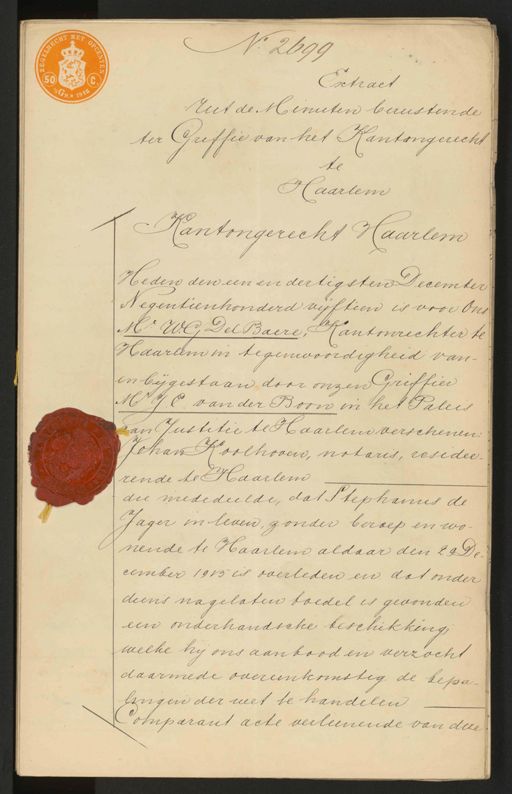 ZEGELRECHT MET OPCENTEN
50 C.
N. 2699
Extract
Uit de Minuten berustende
ter Griffie van het Kantongerecht
te
Haarlem
Kantongerecht Haarlem
Heden den een en dertigsten December
Negentienhonderd vijftien is voor Ons
Mr. W G J Del Baere, Kantonrechter te
Haarlem in tegenwoordigheid van-
en bijgestaan door onzen Griffier
Mr J C. van der Boon in het Paleis
van Justitie te Haarlem verschenen:
Johan Koolhoven, notaris, residee-
rende te Haarlem
die mededeelde, dat Stephanus de
Jager in leven, zonder beroep en wo-
nende te Haarlem aldaar den 29 De-
cember 1915 is overleden en dat onder
diens nagelaten boedel is gevonden
een onderhandsche beschikking,
welke hij ons aanbood en verzocht
daarmede overeenkomstig de bepa-
lingen der wet te handelen
Comparant acte verleenende van deze